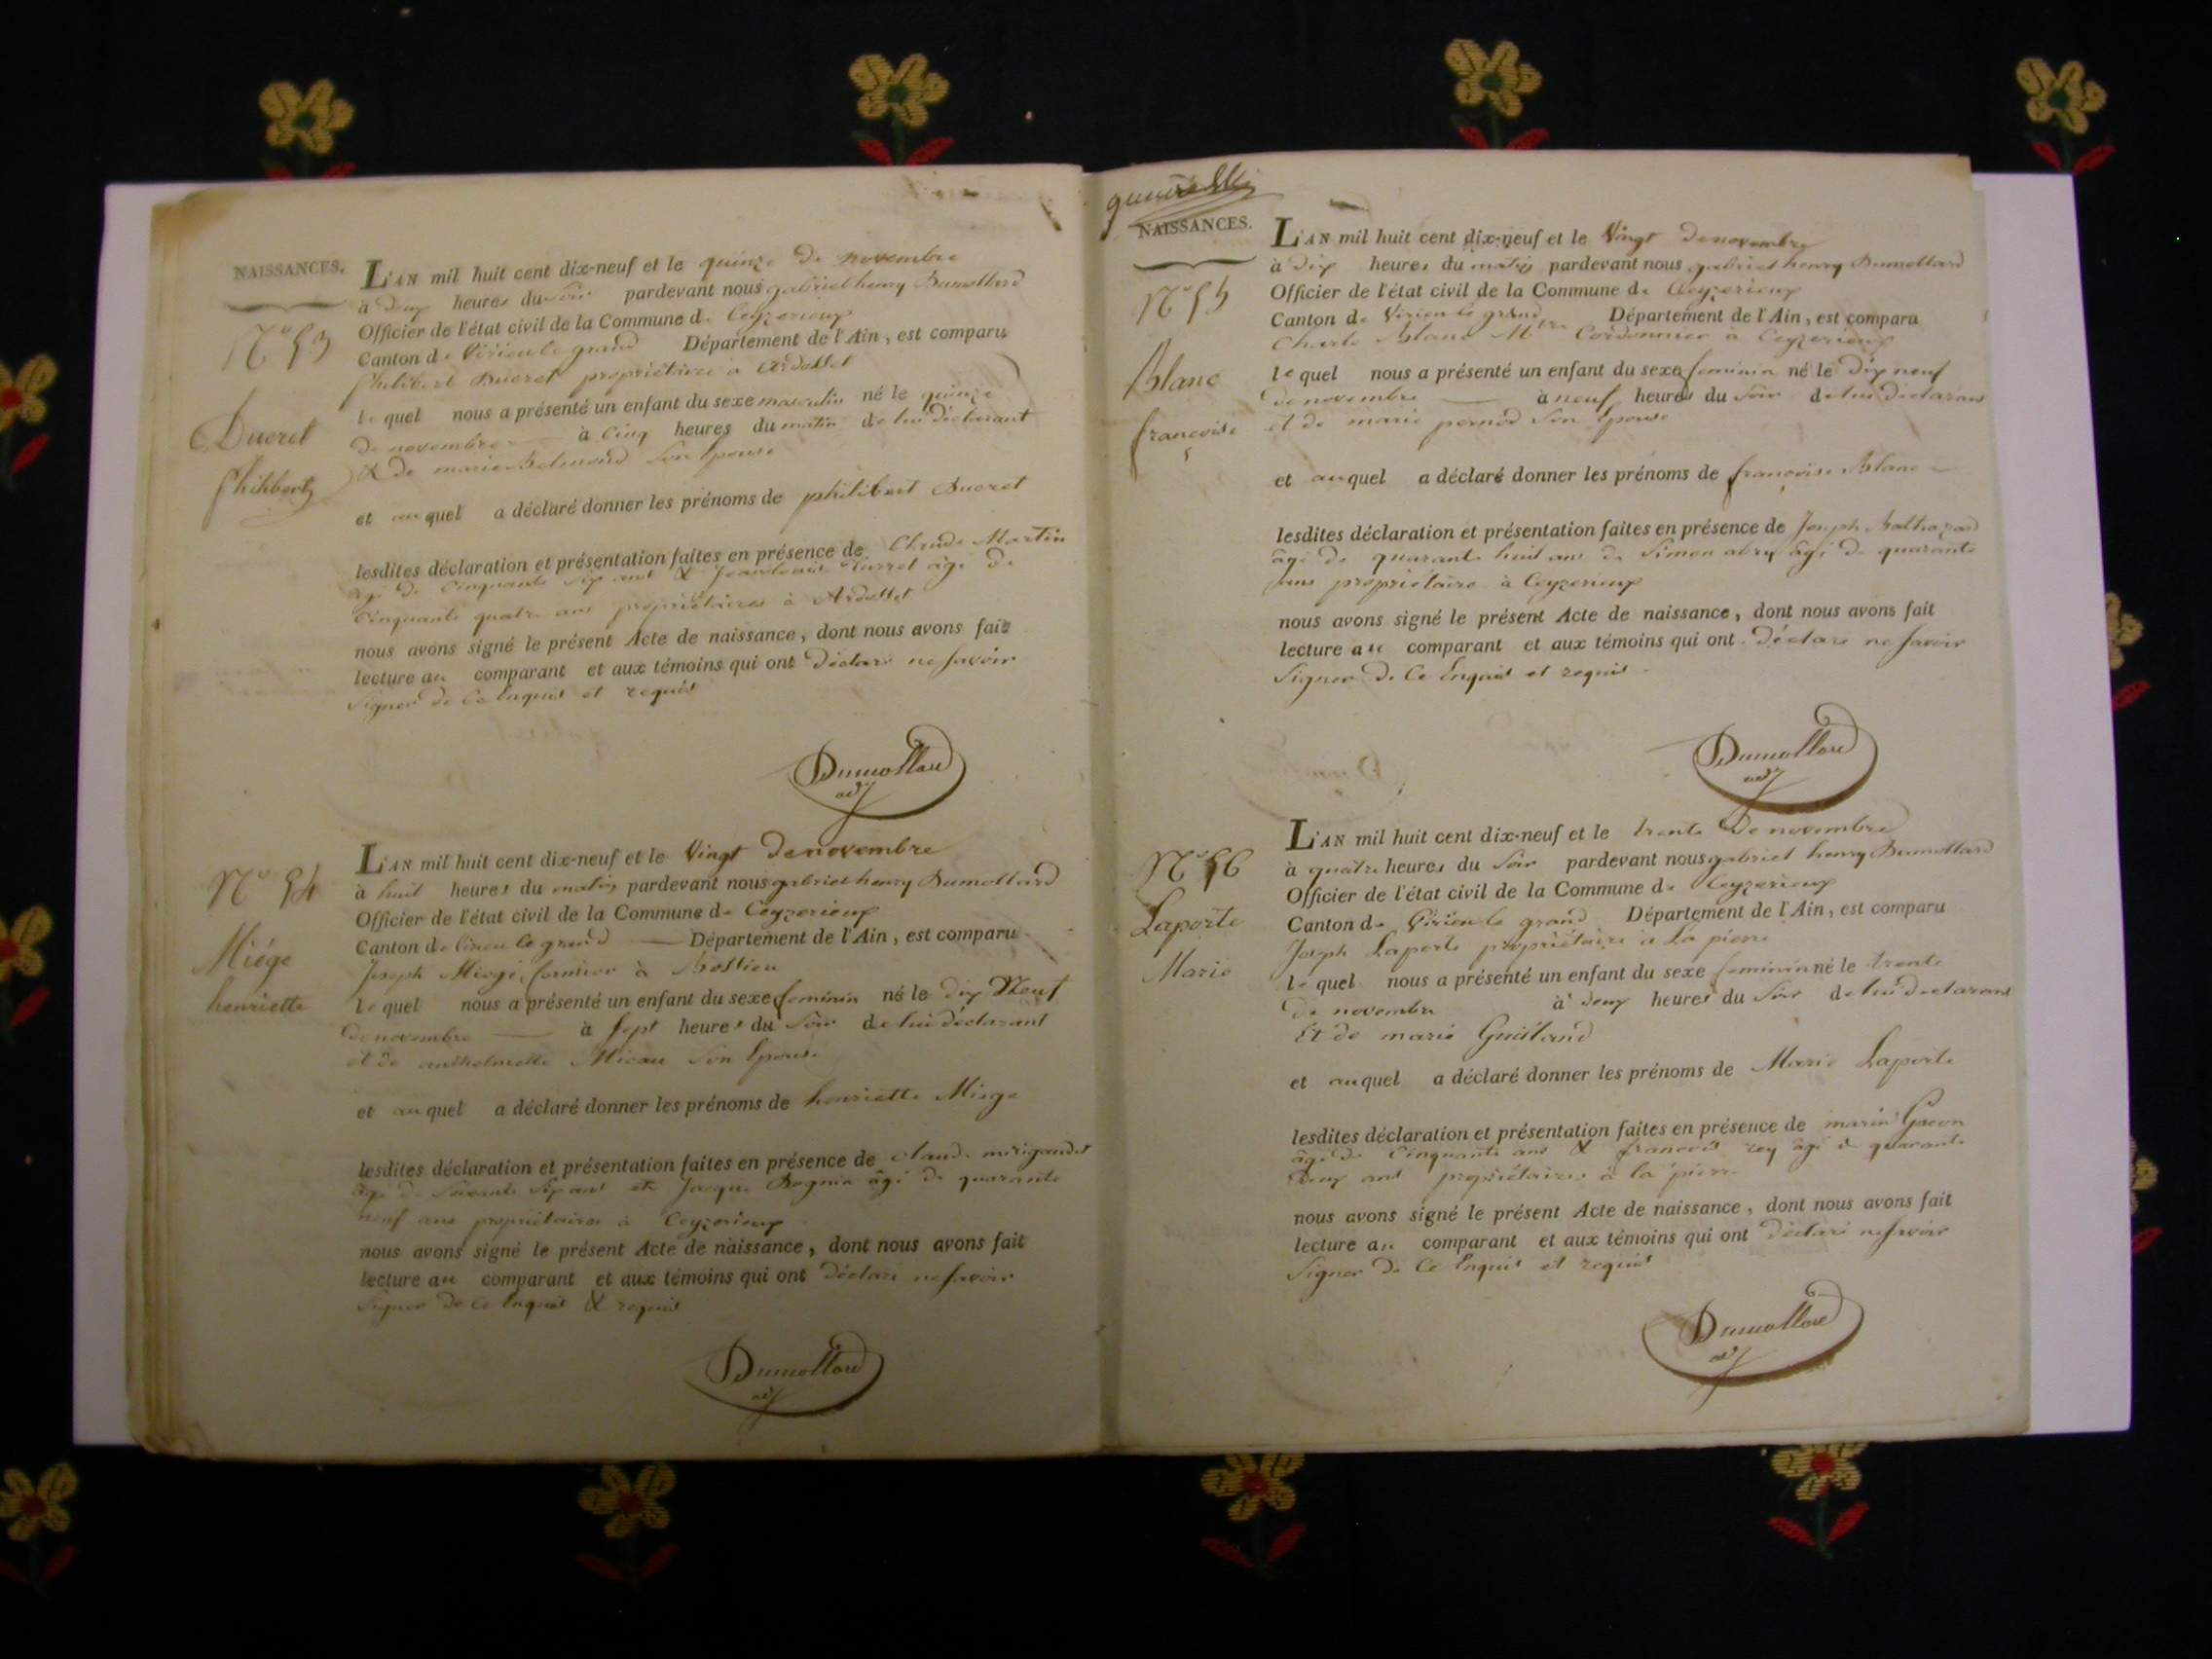 NAISSANCES.
L'AN mil huit cent dix-neuf et le quinze de novembre
à deux heures du soir pardevant nous gabriel henry Dumollard
Officier de l'état civil de la Commune de Ceyzerieux
Canton de Virieu le grand Département de l'Ain, est comparu
philibert Ducret propriétaire à Ardosset
lequel nous a présenté un enfant du sexe masculin né le quinze
de novembre à cinq heures du matin de lui déclarant
& de marie son Epouse
et auquel a déclaré donner les prénoms de philibert Ducret
lesdites déclaration et présentation faites en présence de Claude Martin
âgé de cinquante six ans & Jean louis âgé de
cinquante quatre ans propriétaires à Ardosset
nous avons signé le présent Acte de naissance, dont nous avons fait
lecture au comparant et aux témoins qui ont déclaré ne savoir
signer de ce Enquis et requis
N° 53
Ducret
philibert
Dumollard
adj
N° 54
Miége
henriette
L'AN mil huit cent dix-neuf et le Vingt de novembre
à huit heures du matin pardevant nous gabriel henry Dumollard
Officier de l'état civil de la Commune de Ceyzerieux
Canton de Virieu le grand Département de l'Ain, est comparu
Joseph Miege fermier à
lequel nous a présenté un enfant du sexe feminin né le dix Neuf
de novembre à sept heures du soir de lui déclarant
et de anthelmette son Epouse
et auquel a déclaré donner les prénoms de henriette Miege
lesdites déclaration et présentation faites en présence de claude
âgé de soixante six ans et Jacque âgé de quarante
neuf ans propriétaires à Ceyzerieux
nous avons signé le présent Acte de naissance, dont nous avons fait
lecture au comparant et aux témoins qui ont déclaré ne savoir
signer de ce Enquis & requis
Dumollard
adj
NAISSANCES.
N° 55
Blanc
françoise
L'AN mil huit cent dix-neuf et le Vingt de novembre
à dix heures du matin pardevant nous gabriel henry Dumollard
Officier de l'état civil de la Commune de Ceyzerieux
Canton de Virieu le grand Département de l'Ain, est comparu
Charle Blanc Mtre Cordonnier à Ceyzerieux
lequel nous a présenté un enfant du sexe feminin né le dix neuf
de novembre à neuf heures du soir de lui déclarant
et de marie pernod son Epouse
et auquel a déclaré donner les prénoms de françoise Blanc
lesdites déclaration et présentation faites en présence de Joseph Balthazard
âgé de quarante huit ans de Simon abry âgé de quarante
ans propriétaire à Ceyzerieux
nous avons signé le présent Acte de naissance, dont nous avons fait
lecture au comparant et aux témoins qui ont déclaré ne savoir
signer de Ce Enquis et requis
Dumollard
adj
N° 56
Laporte
Marie
L'AN mil huit cent dix-neuf et le trente de novembre
à quatre heures du soir pardevant nous gabriel henry Dumollard
Officier de l'état civil de la Commune de Ceyzerieux
Canton de Virieu le grand Département de l'Ain, est comparu
Joseph Laporte propriétaire à La pierre
lequel nous a présenté un enfant du sexe feminin né le trente
de novembre à deux heures du soir de lui déclarant
Et de marie Guilland
et auquel a déclaré donner les prénoms de Marie Laporte
lesdites déclaration et présentation faites en présence de marin
âgé de cinquante ans & francois rey âgé de quarante
deux ans propriétaires à la pierre
nous avons signé le présent Acte de naissance, dont nous avons fait
lecture au comparant et aux témoins qui ont déclaré ne savoir
signer de Ce Enquis et requis
Dumollard
adj